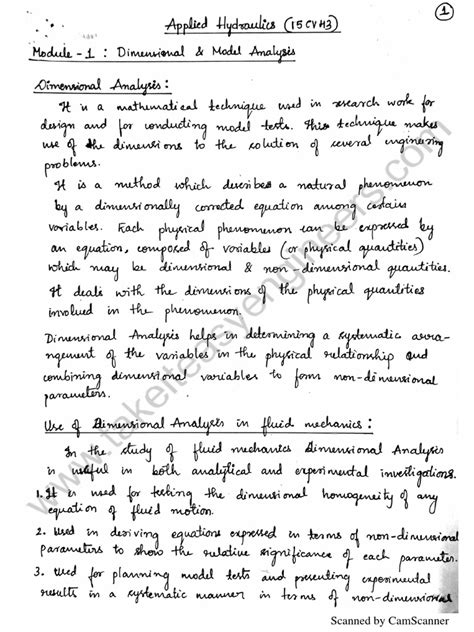 1
Applied Hydraulics (15CV43)
Module - 1 : Dimensional & Model Analysis
Dimensional Analysis :
It is a mathematical technique used in research work for
design and for conducting model tests. This technique makes
use of the dimensions to the solution of several engineering
problems.
It is a method which describes a natural phenomenon
by a dimensionally corrected equation among certain
variables. Each physical phenomenon can be expressed by
an equation, composed of variables (or physical quantities)
which may be dimensional & non-dimensional quantities.
It deals with the dimensions of the physical quantities
involved in the phenomenon.
Dimensional Analysis helps in determining a systematic arra-
ngement of the variables in the physical relationship and
combining dimensional variables to form non-dimensional
parameters.
Use of Dimensional Analysis in fluid mechanics :
In the study of fluid mechanics Dimensional Analysis
is useful in both analytical and experimental investigations.
1. It is used for testing the dimensional homogeneity of any
equation of fluid motion.
2. Used in deriving equations expressed in terms of non-dimensional
parameters to show the relative significance of each parameter.
3. Used for planning model tests and presenting experimental
results in a systematic manner in terms of non-dimensional
www.takeiteasyengineers.com
Scanned by CamScanner